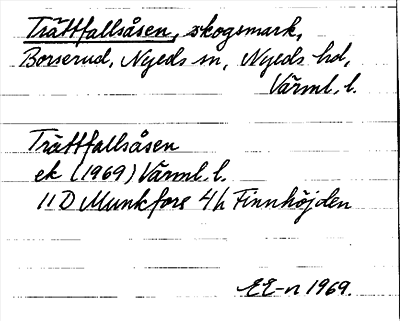 Trättfallsåsen, skogsmark,
Borserud, Nyeds sn, Nyeds hd,
Värml. l.
Trättfallsåsen
ek (1969) Värml. l.
11D Munkfors 4h Finnhöjden
EE-n 1969.